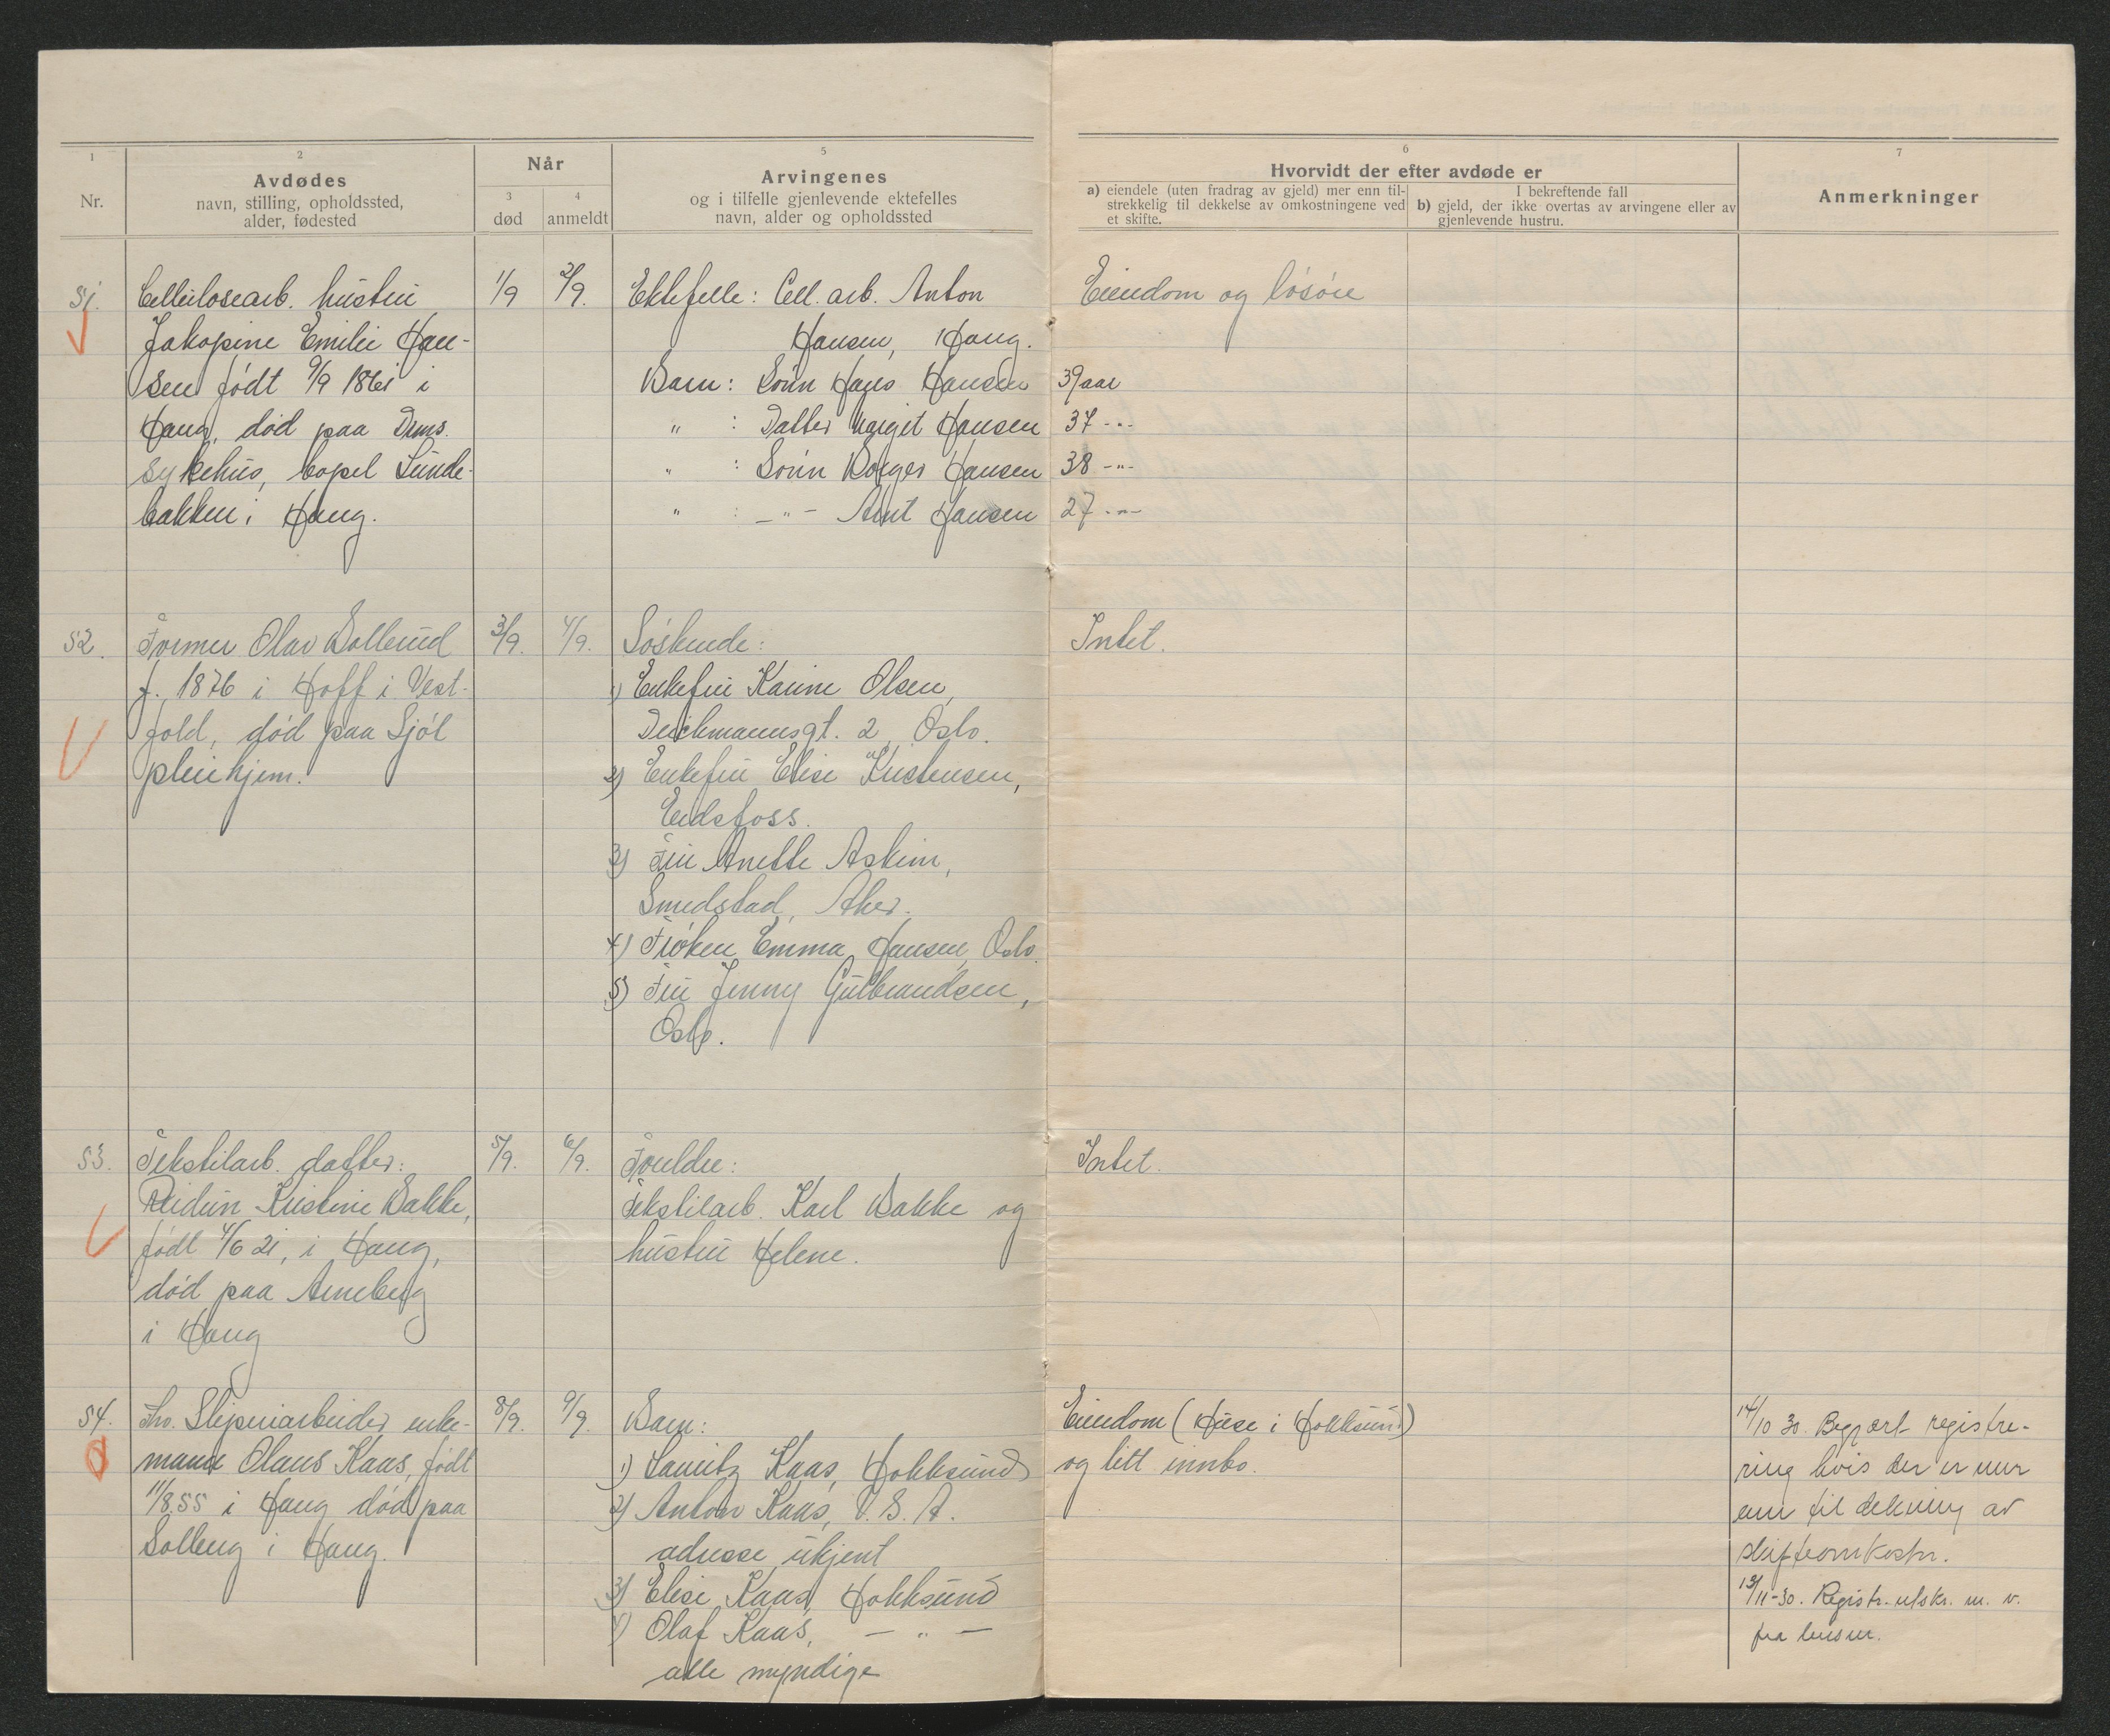 1
2
Når
5
6
7
Avdødes
Arvingenes
Hvorvidt der efter avdøde er
Anmerkninger
Nr.
navn, stilling, opholdssted,
alder, fødested
3
død
4
anmeldt
og i tilfelle gjenlevende ektefelles
navn, alder og opholdssted
a) eiendele (uten fradrag av gjeld) mer enn til-
strekkelig til dekkelse av omkostningene ved
et skifte.
I bekreftende fall
b) gjeld, der ikke overtas av arvingene eller av
gjenlevende hustru.
51. Cellulosearb. hustru 1/9 2/9. Ektefelle: Cell. arb. Anton Eiendom og løsøre
Jakopine Emilie Han- Hansen, Haug.
sen født 9/9 1861 i Barn: Sønn Hans Hansen 39 aar
Haug, død paa Drms. " : Datter Margit Hansen 37 -"-
sykehus, bopel Sunde- " : Sønn Borger Hansen 38 -"-
bakken i Haug. " : -"- Arnt Hansen 27 -"-
52. Former Olav Bollerud 3/9. 4/9. Søskende: Intet.
f. 1876 i Hoff i Vest- 1) Enkefru Karine Olsen,
fold, død paa Sjøl Deichmannsgt. 2, Oslo.
pleiehjem. 2) Enkefru Elise Kristensen,
Eidsfoss.
3) Fru Anette Askim,
Smedstad, Aker.
4) Frøken Emma Hansen, Oslo.
5) Fru Jenny Gulbrandsen,
Oslo.
53. Tekstilarb. datter: 5/9. 6/9. Foreldre: Intet.
Reidun Kristine Bakke, Tekstilarb. Karl Bakke og
født 4/6 21, i Haug, hustru Helene.
død paa Arneberg
i Haug
54. Fhv. Sliperiarbeider enke- 8/9. 9/9. Barn: Eiendom (Huse i Hokksund) 14/10 30. Begj. ert registre-
mand Olaus Kaas, født 1) Lauritz Kaas, Hokksund og litt innbo. ring hvis der er mer
11/8.55 i Haug død paa 2) Anton Kaas, U.S.A. enn til dekning av
Solberg i Haug. adresse ukjent skifteomkostn.
3) Elise Kaas, Hokksund 13/11-30. Registr. utskr. m. v.
4) Olaf Kaas, - " - fra lensm.
alle myndige